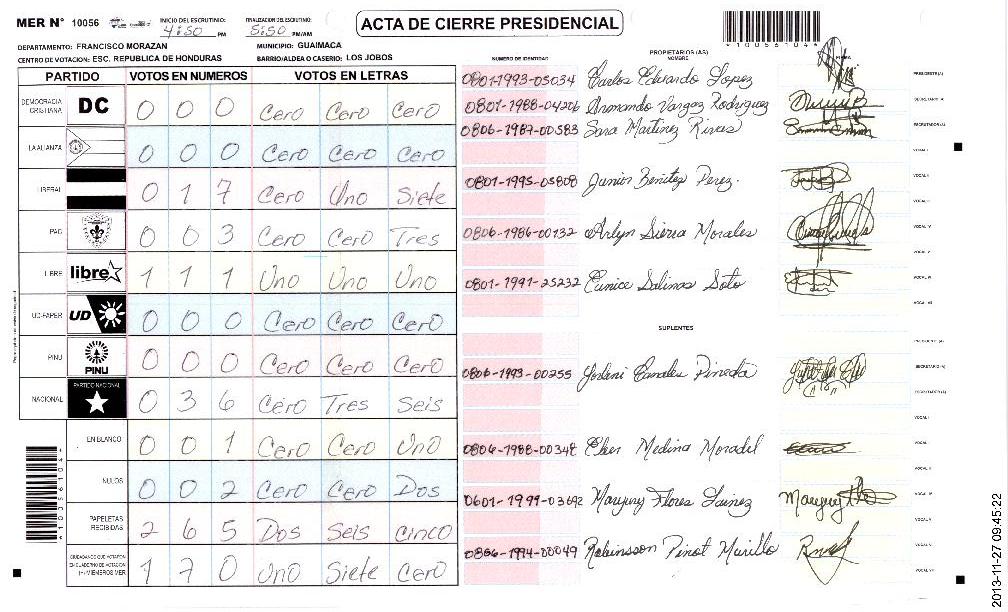 MER Nº 10056
INICIO DEL ESCRUTINIO: 4:50 PM
FINALIZACION DEL ESCRUTINIO: 5:50 PM/AM
ACTA DE CIERRE PRESIDENCIAL
DEPARTAMENTO: FRANCISCO MORAZAN MUNICIPIO: GUAIMACA
CENTRO DE VOTACION: ESC. REPUBLICA DE HONDURAS BARRIO/ALDEA O CASERIO: LOS JOBOS
PARTIDO VOTOS EN NUMEROS VOTOS EN LETRAS
DEMOCRACIA CRISTIANA DC 0 0 0 Cero Cero Cero
LA ALIANZA 0 0 0 Cero Cero Cero
LIBERAL 0 1 7 Cero Uno Siete
PAC 0 0 3 Cero Cero Tres
LIBRE libre 1 1 1 Uno Uno Uno
UD-FAPER UD 0 0 0 Cero Cero Cero
PINU PINU 0 0 0 Cero Cero Cero
NACIONAL PARTIDO NACIONAL 0 3 6 Cero Tres Seis
EN BLANCO 0 0 1 Cero Cero Uno
NULOS 0 0 2 Cero Cero Dos
PAPELETAS RECIBIDAS 2 6 5 Dos Seis Cinco
CIUDADANOS QUE VOTARON EN CUADERNO DE VOTACION (+) MIEMBROS MER 1 7 0 Uno Siete Cero
NUMERO DE IDENTIDAD PROPIETARIOS (AS) NOMBRE FIRMA
0801-1993-05034 Carlos Edvardo Lopez PRESIDENTE(A)
0801-1988-04206 Armando Vargas Rodriguez SECRETARIO(A)
0806-1987-00583 Sara Martinez Rivas ESCRUTADOR(A)
VOCAL I
0801-1995-05808 Junior Benitez Perez. VOCAL II
VOCAL III
0806-1986-00132 Arlyn Sierra Morales VOCAL IV
VOCAL V
0801-1991-25232 Eunice Salinas Soto VOCAL VI
VOCAL VII
SUPLENTES
PRESIDENTE(A)
0806-1993-00255 Canales Pineda SECRETARIO(A)
ESCRUTADOR(A)
VOCAL I
0806-1988-00348 Elser Medina Moradel VOCAL II
VOCAL III
0601-1999-03692 Maryury Flores Maryury VOCAL IV
VOCAL V
0806-1994-00049 Robinsson Pinot Murillo VOCAL VI
VOCAL VII
2013-11-27 09:45:22